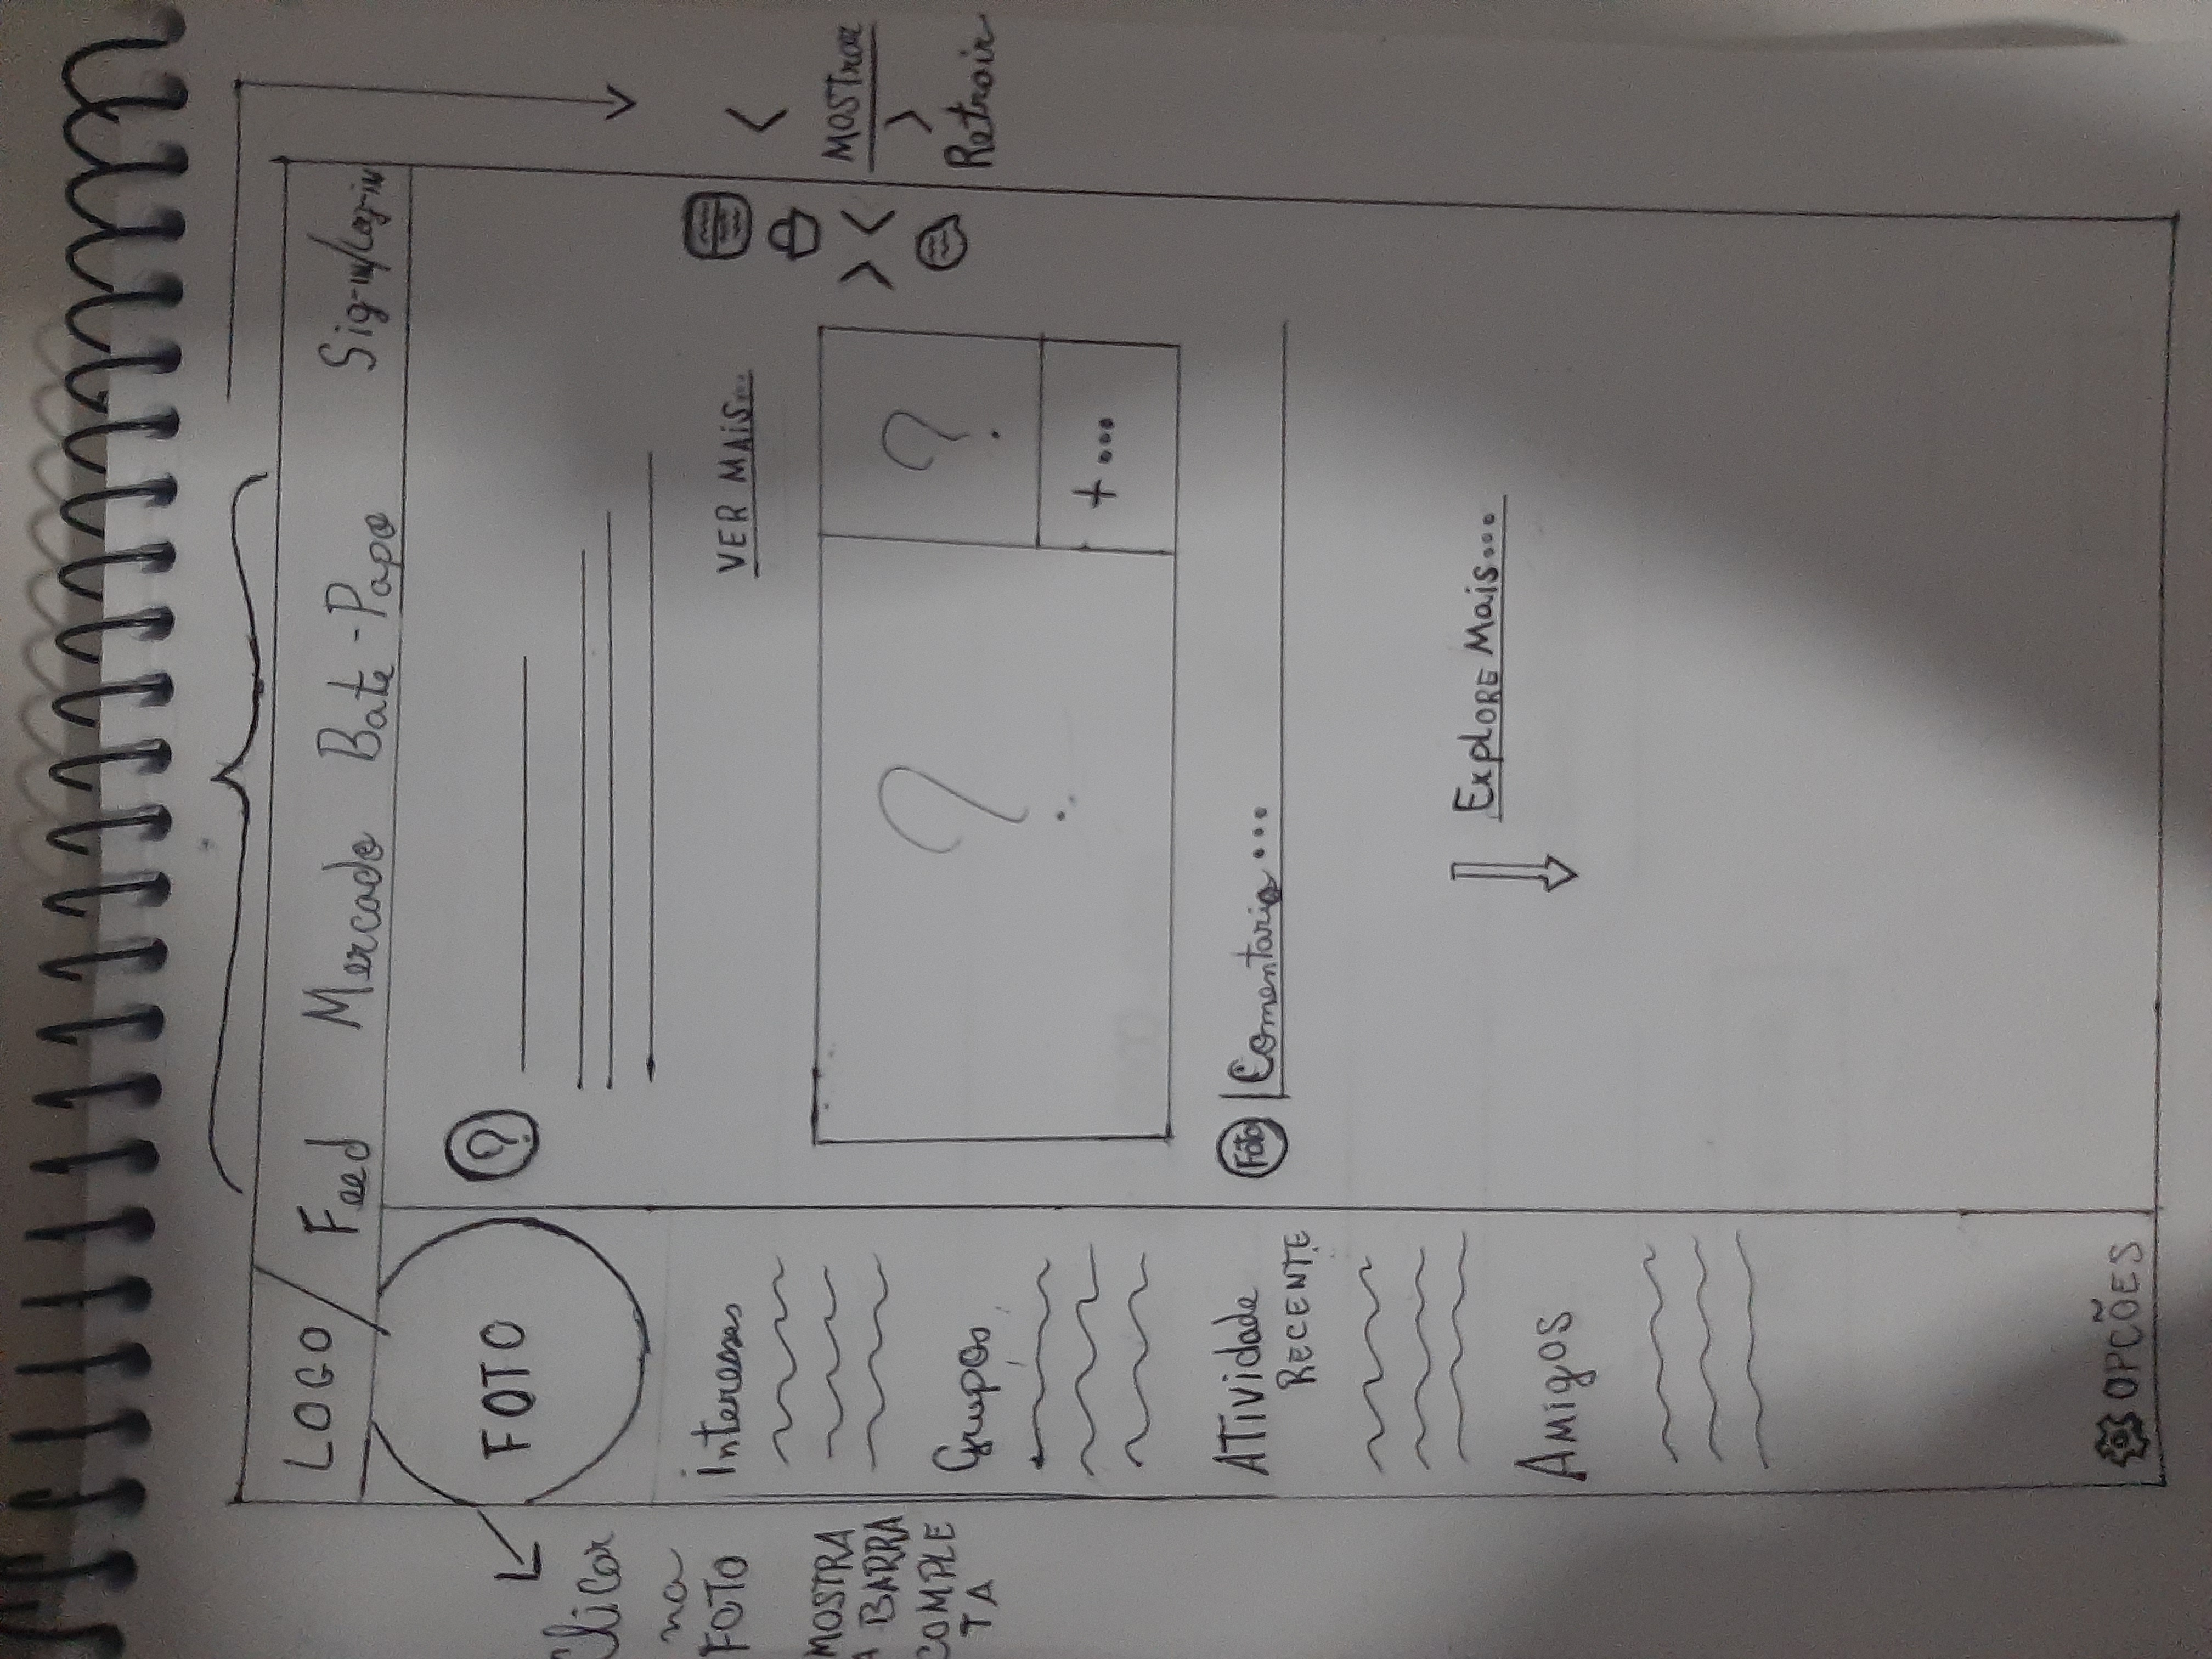 LOGO
Feed Mercado Bate-Papo Sig-in/Log-in
FOTO
?
Clicar
na
FOTO
MOSTRA
A BARRA
COMPLE
TA
Interesses
Grupos
ATividade
RECENTE
Amigos
OPCÕES
VER MAIS...
?
?
+ ...
Foto
Comentario ...
Explore Mais...
> <
<
MOSTrar
>
Retrair